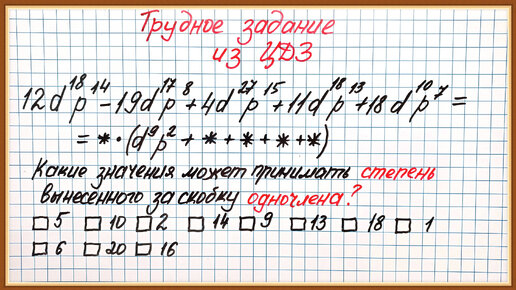 Трудное задание
из ЦДЗ
12d¹⁸p¹⁴ - 19d¹⁷p⁸ + 4d²⁷p¹⁵ + 11d¹⁸p¹³ + 18d¹⁰p⁷ =
= * · (d⁹p² + * + * + * + *)
Какие значения может принимать степень
вынесенного за скобку одночлена?
□ 5 □ 10 □ 2 □ 14 □ 9 □ 13 □ 18 □ 1
□ 6 □ 20 □ 16